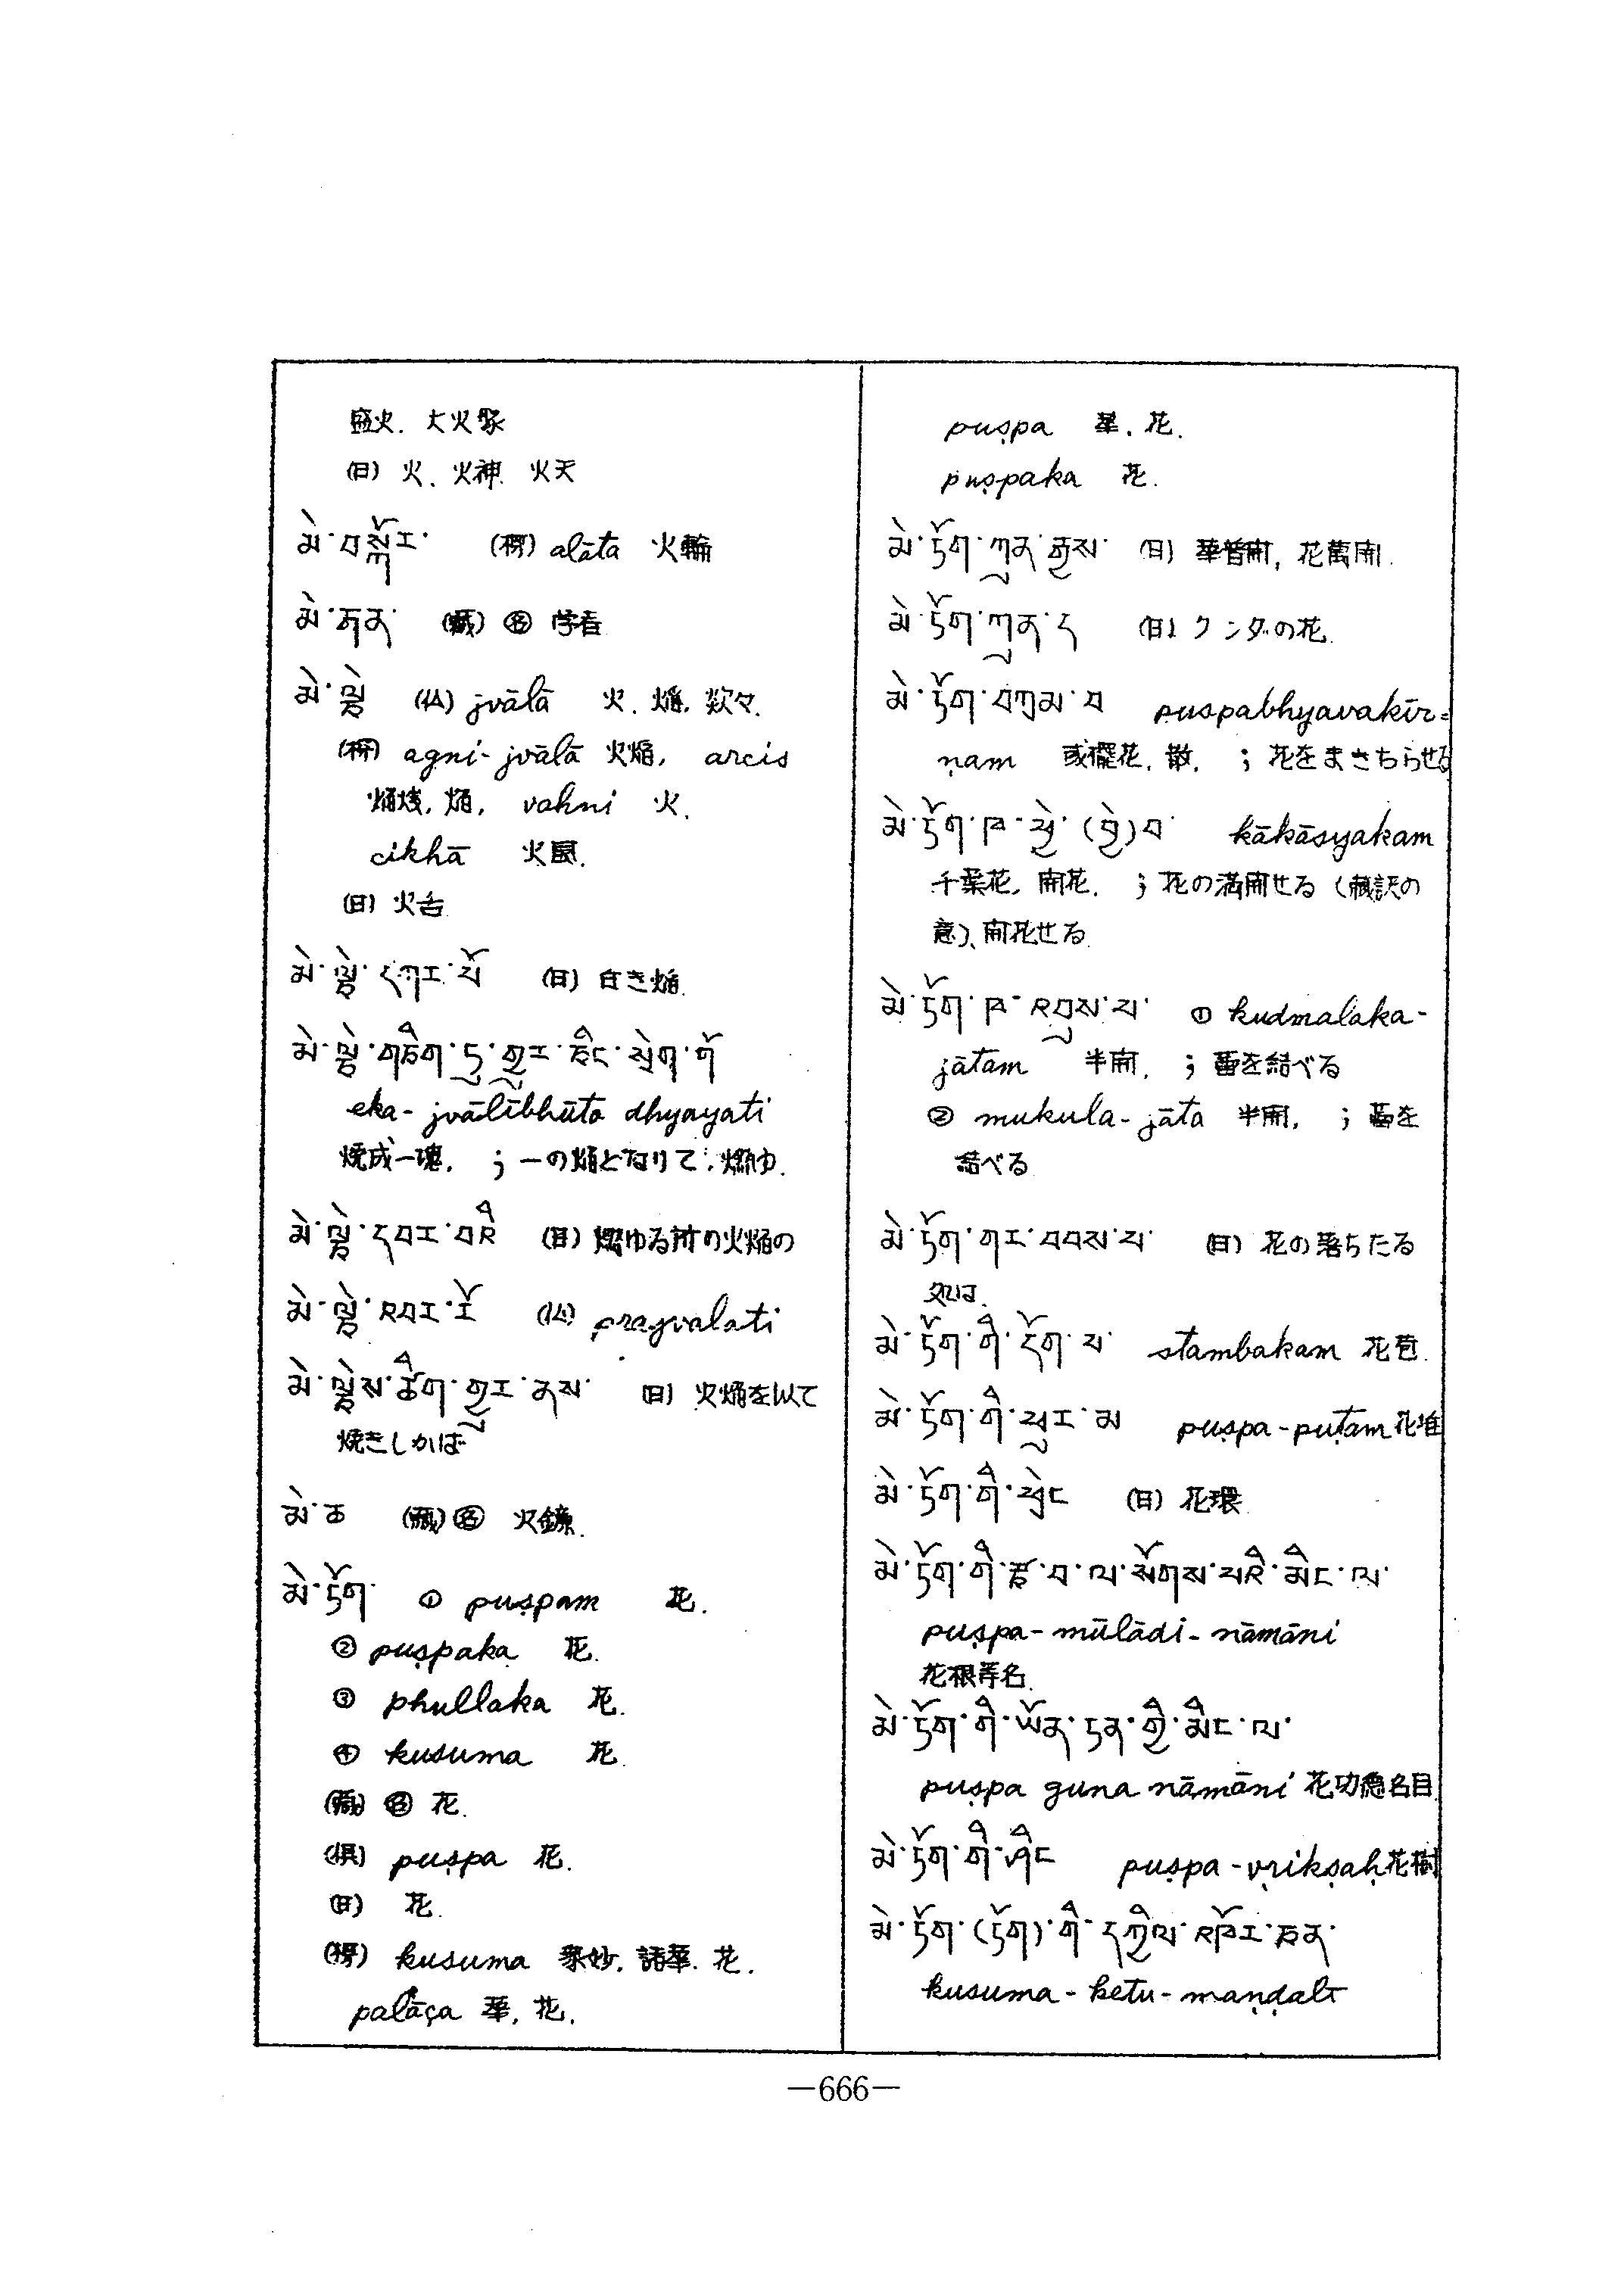 盛火. 大火聚
(日) 火、火神. 火天
མེ་བསྐོར་ (楞) alāta 火輪
མེ་ཏན་ (蔵) 名
མེ་ལྕེ (仏) jvālā 火. 焔.
(楞) agni-jvālā 火焔, arcis
焔, vahni 火.
cikhā 火
(日) 火舌
མེ་ལྕེ་དཀར་པོ (日) 白き焔.
མེ་ལྕེ་གཅིག་ཏུ་གྱུར་ཅིང་སྲེག་གོ
eka-jvālībhūto dhyayati
焼成一塊. ; 一の焔となりて、燃ゆ.
མེ་ལྕེ་དབར་བའི (日) 燃ゆる所の火焔の
མེ་ལྕེ་འབར་རོ (仏) prajvalati
མེ་ལྕེས་ཚིག་གྱུར་ནས་ (日) 火焔を以て
焼きしかば
མེ་ཆ (蔵) 名 火鎌.
མེ་ཏོག་ ① puṣpam 花.
② puṣpaka 花.
③ phullaka 花.
④ kusuma 花.
(蔵) 名 花.
(倶) puṣpa 花.
(日) 花.
(楞) kusuma 衆妙. 諸華. 花.
palāça 華, 花.
puṣpa 華. 花.
puṣpaka 花.
མེ་ཏོག་ཀུན་རྒྱས་ (日) 華普開, 花萬開.
མེ་ཏོག་ཀུན་ད (日) クンダの花.
མེ་ཏོག་བཀྲམ་བ puspabhyavakīr=
ṇam 或擺花. 散. ; 花をまきちらせる
མེ་ཏོག་ཁ་ཕྱེ་(བྱེ)བ་ kākāsyakam
千葉花, 開花. ; 花の満開せる (蔵訳の
意)、開花せる.
མེ་ཏོག་ཁ་འབུས་པ་ ① kudmalaka-
jātam 半開. ; 蕾を結べる
② mukula-jāta 半開. ; 蕾を
結べる
མེ་ཏོག་གར་བབས་པ་ (日) 花の落ちたる
処は.
མེ་ཏོག་གི་དོག་པ་ stambakam 花苞.
མེ་ཏོག་གི་ཕུར་མ puṣpa-puṭam 花堆
མེ་ཏོག་གི་ཕྲེང (日) 花環
མེ་ཏོག་གི་རྩ་བ་ལ་སོགས་པའི་མིང་ལ་
puṣpa-mūlādi-nāmāni
花根等名.
མེ་ཏོག་གི་ཡོན་ཏན་གྱི་མིང་ལ་
puṣpa guna nāmāni 花功徳名目.
མེ་ཏོག་གི་ཤིང puṣpa-vṛikṣaḥ 花樹
མེ་ཏོག་(ཏོག)་གི་དཀྱིལ་འཁོར་ཅན་
kusuma-ketu-maṇḍalī
—666—